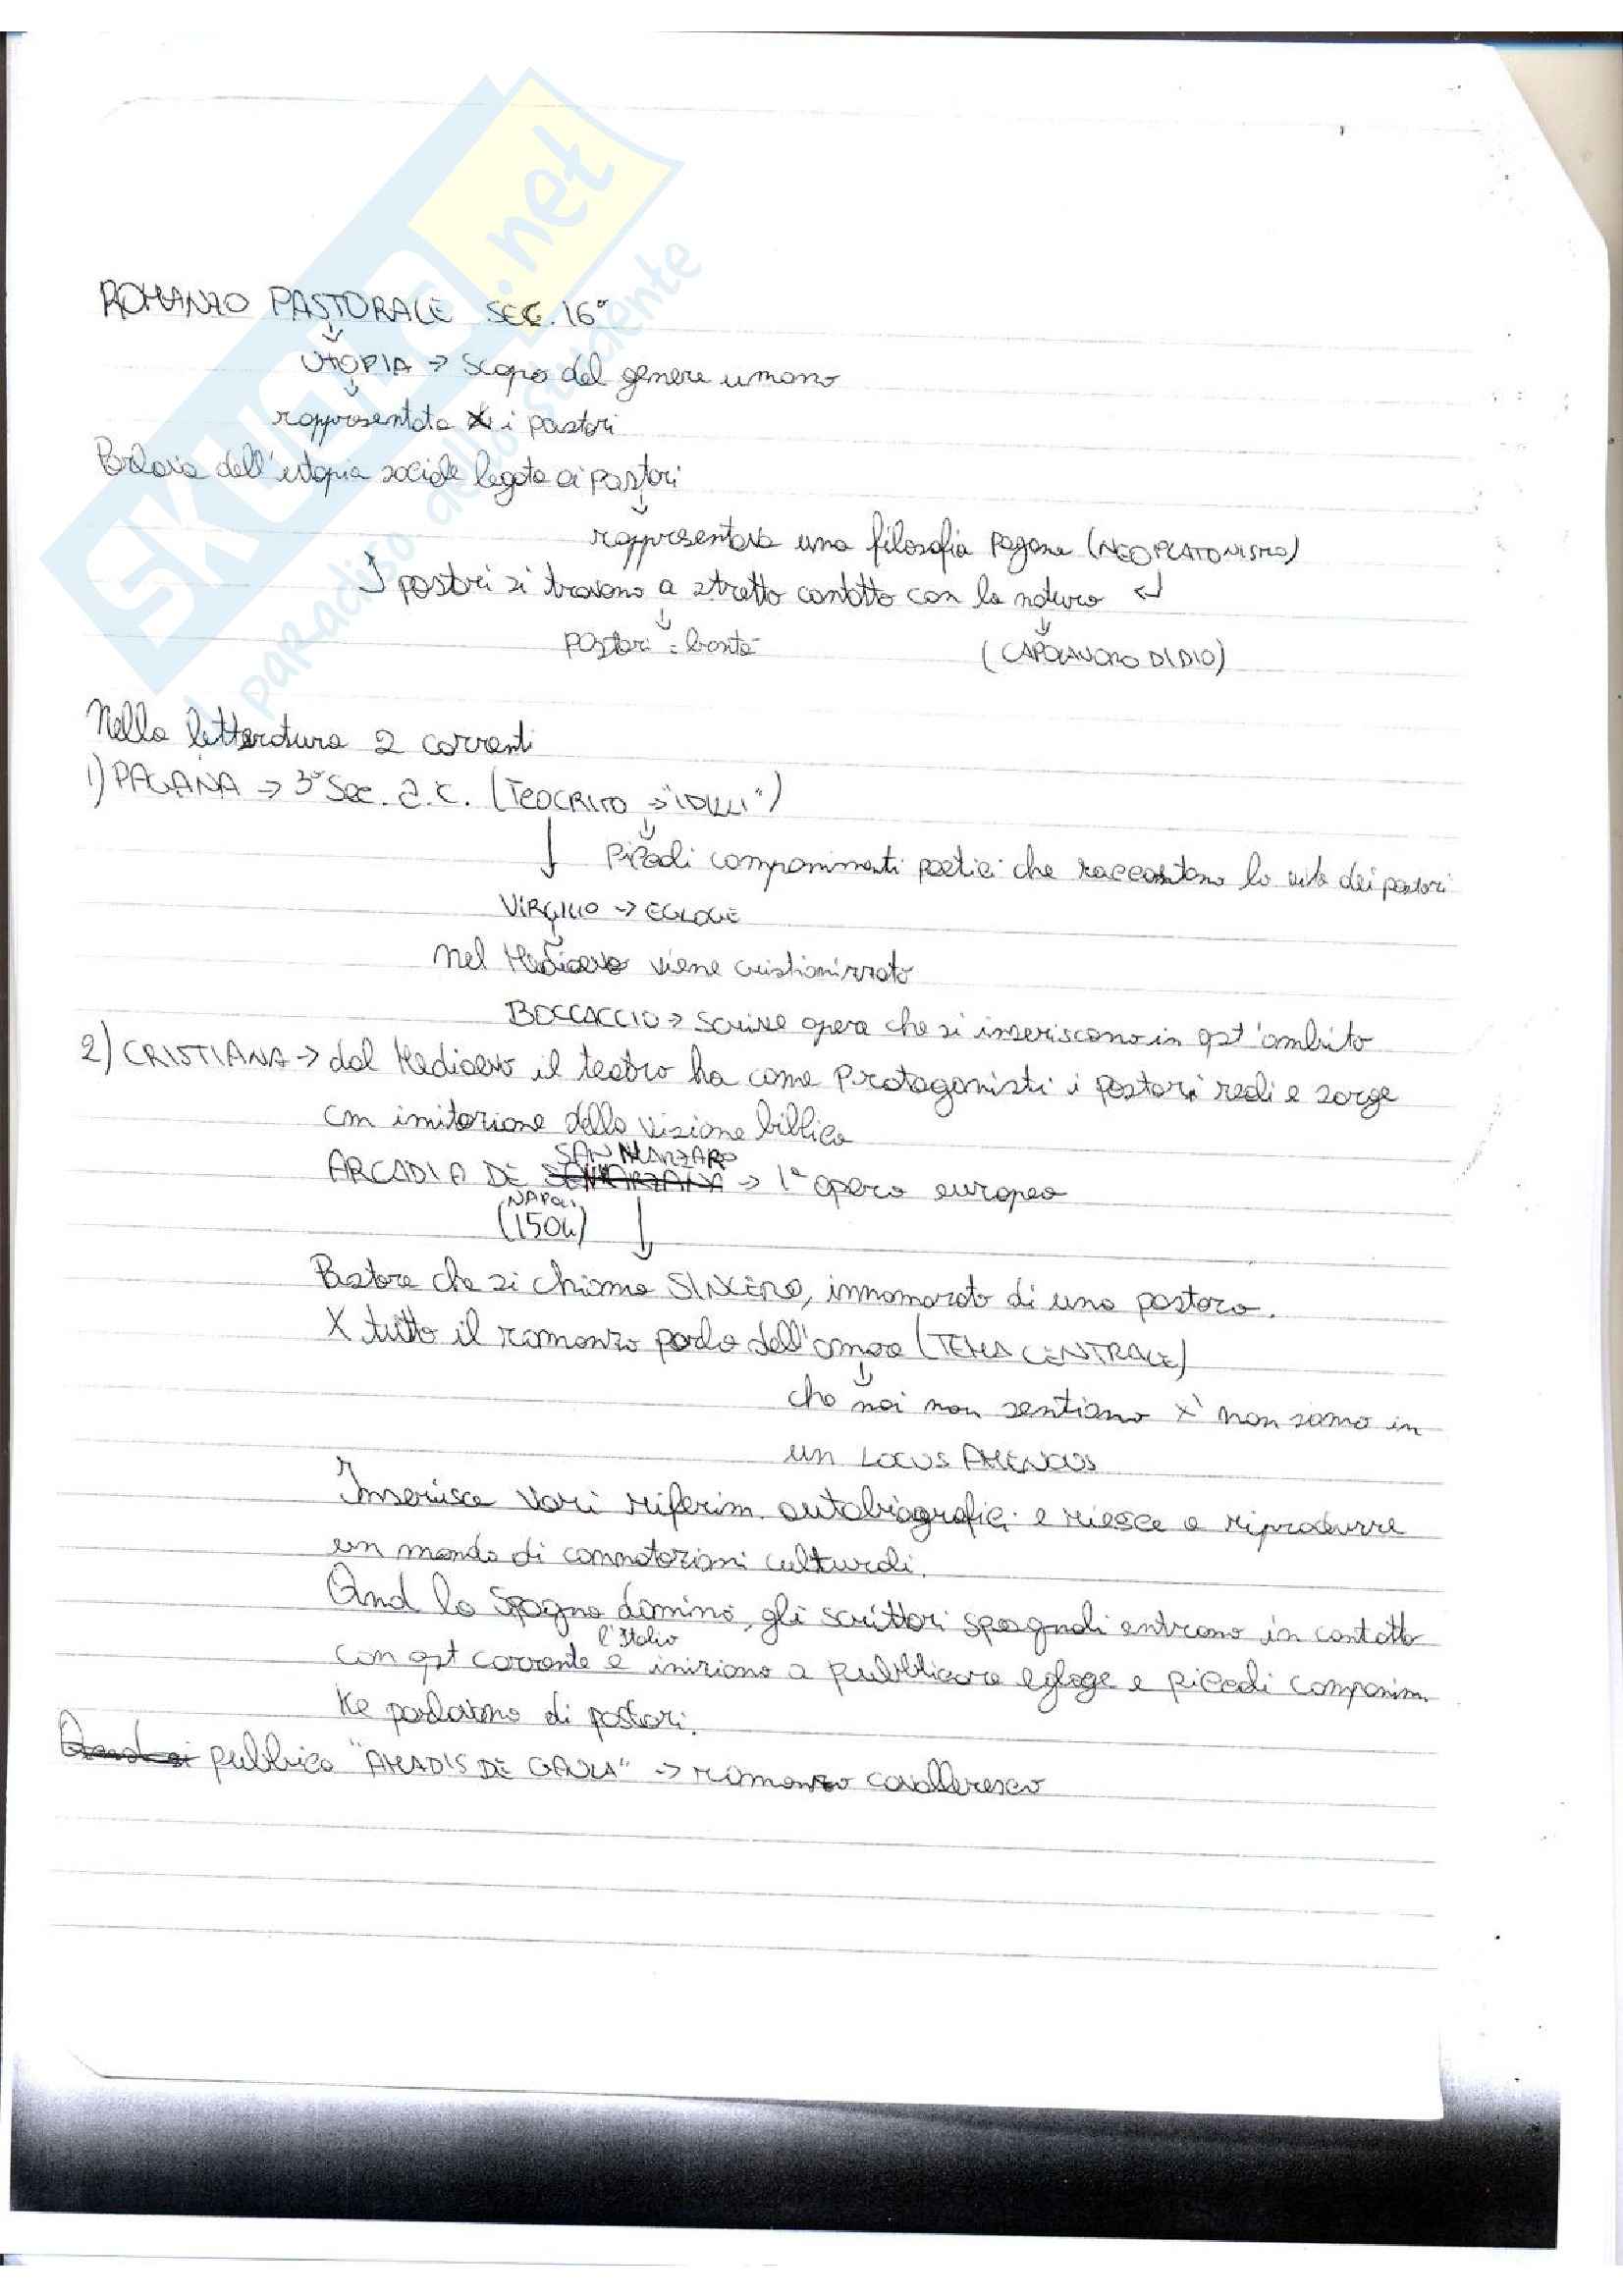 SKUOLA.net
il paradiso dello studente
ROMANZO PASTORALE SEC. 16°
↓
UTOPIA → Scopo del genere umano
↓
rappresentata x i pastori
Parlava dell'utopia sociale legata ai pastori
↓
rappresentava una filosofia pagana (NEOPLATONISMO)
I pastori si trovano a stretto contatto con la natura ↵
↓ ↓
pastori = bontà (CAPOLAVORO DI DIO)
Nella letteratura 2 correnti
1) PAGANA → 3° Sec. a.C. (TEOCRITO → "IDILLI")
↓ ↓
Piccoli componimenti poetici che raccontano la vita dei pastori
VIRGILIO → EGLOGE
↓
Nel Medioevo viene cristianizzato
BOCCACCIO → scrive opere che si inseriscono in qst'ambito
2) CRISTIANA → dal Medioevo il teatro ha come protagonisti i pastori reali e sorge
con imitazione della visione biblica
ARCADIA DE SANNAZARO → 1ª opera europea
NAPOLI
(1504) ↓
Pastore che si chiama SINCERO, innamorato di una pastora.
X tutto il romanzo parla dell'amore (TEMA CENTRALE)
↓
che noi non sentiamo x' non siamo in
un LOCUS AMENOUS
Inserisce vari riferim. autobiografici e riesce a riprodurre
un mondo di connotazioni culturali.
Qnd la Spagna dominò, gli scrittori spagnoli entrano in contatto
l'Italia
con qst corrente e iniziano a pubblicare egloge e piccoli componim.
ke parlavano di pastori.
pubblica "AMADIS DE GAULA" → romanzo cavalleresco